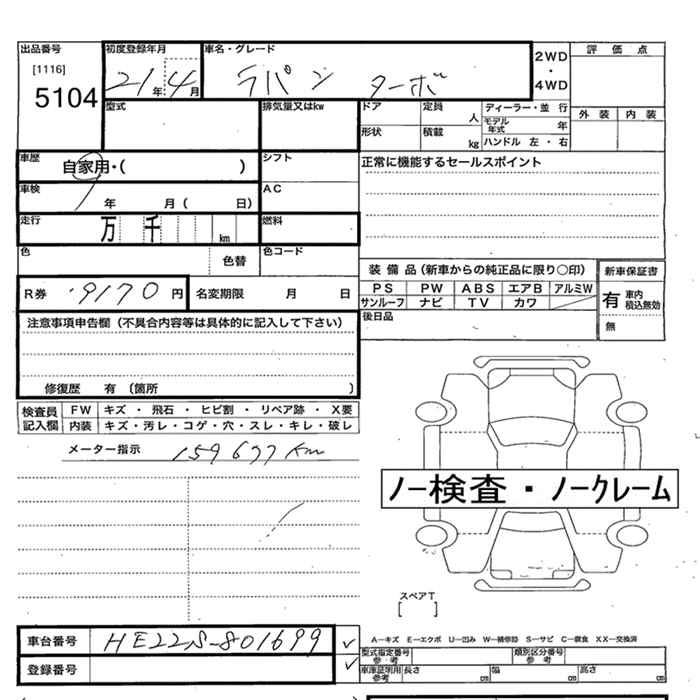 出品番号
[1116]
5104
初度登録年月
21 年 4 月
車名・グレード
ラパン ターボ
2WD
・
4WD
評 価 点
外 装 内 装
型式
排気量又はkw
ドア
定員
人
ディーラー・並 行
モデル
年式
年
形状
積載
kg
ハンドル 左・右
車歴
自家用・( )
シフト
正常に機能するセールスポイント
車検
年 月( 日)
AC
走行
万 千 km
燃料
色
色替
色コード
装 備 品 (新車からの純正品に限り○印)
新車保証書
PS PW ABS エアB アルミW
サンルーフ ナビ TV カワ
有 車内
積込無効
無
後日品
R券 9170 円
名変期限 月 日
注意事項申告欄(不具合内容等は具体的に記入して下さい)
修復歴 有 (箇所 )
検査員
記入欄
FW キズ ・ 飛石 ・ ヒビ割 ・ リペア跡 ・ X要
内装 キズ・汚レ・コゲ・穴・スレ・キレ・破レ
メーター指示 159677 km
ノー検査・ノークレーム
スペアT
[ ]
車台番号 HE22S-801699
登録番号
A―キズ E―エクボ U―凹み W―補修跡 S―サビ C―腐食 XX―交換済
型式指定番号
参 考
類別区分番号
参 考
車庫証明用
参考
長さ cm 幅 cm 高さ cm